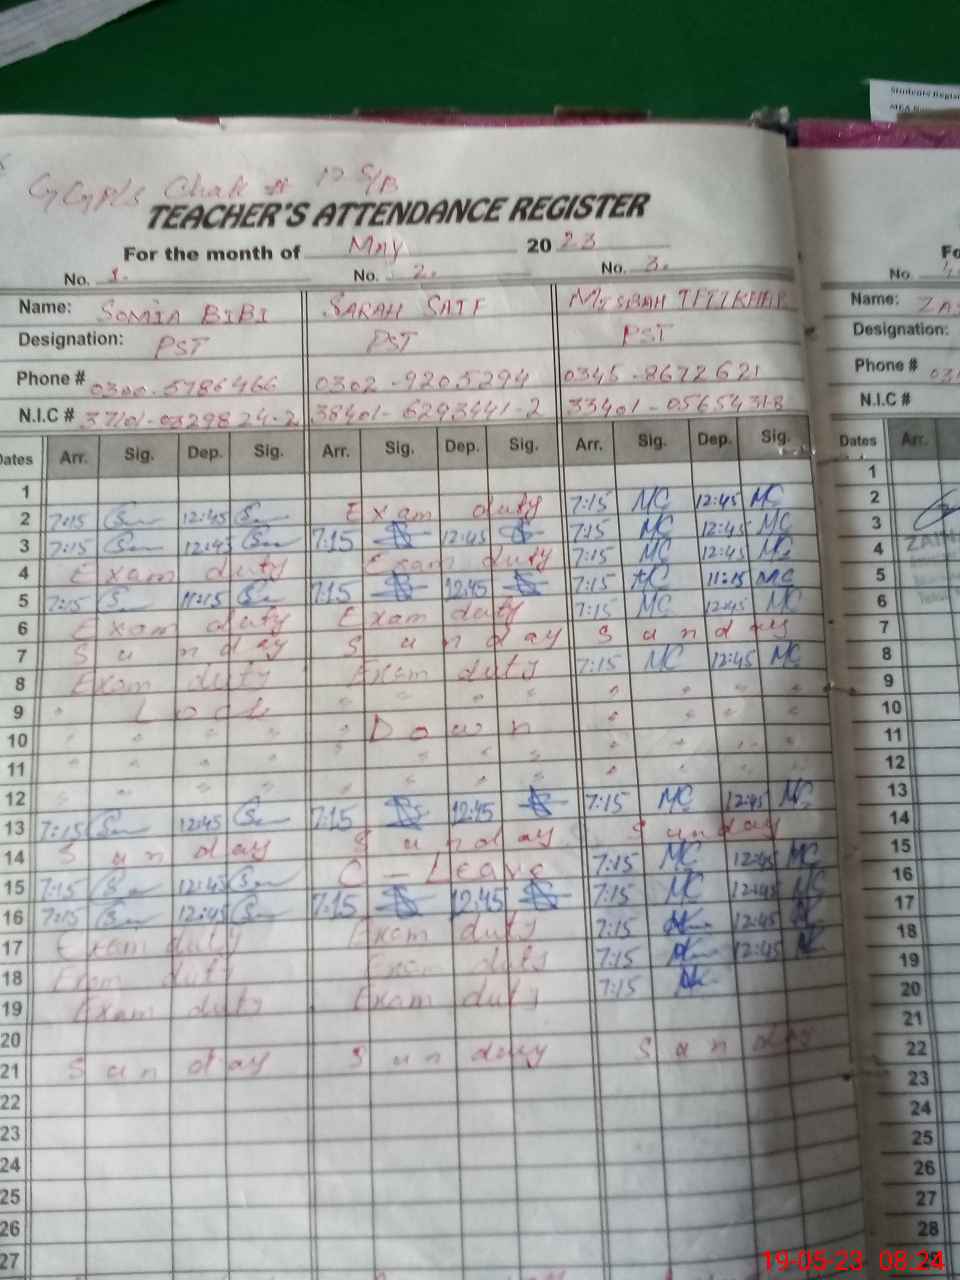 Students Regis
GGCM/S Chak # 10 S/B
TEACHER'S ATTENDANCE REGISTER
For the month of May 2023
No. 1. No. 2. No. 3.
Name: SOMIA BIBI SARAH SAIF MISBAH IFTIKHAR
Designation: PST PST PST
Phone # 0300-5786466 0302-9205294 0345-8672621
N.I.C # 38401-6293441-2
Dates Arr. Sig. Dep. Sig. Arr. Sig. Dep. Sig. Arr. Sig. Dep. Sig.
1
2 7:15 12:45 Exam duty 7:15 MC 12:45 MC
3 7:15 12:45 7:15 12:45 7:15 MC 12:45 MC
4 Exam duty Exam duty 7:15 MC 12:45 MC
5 7:15 11:15 7:15 12:45 7:15 MC 11:15 MC
6 Exam duty Exam duty 7:15 MC 12:45 MC
7 Sunday Sunday Sunday
8 Exam duty Exam duty 7:15 MC 12:45 MC
9 " Lock " " " " " " " "
10 " " " " " Down " " " "
11 " " " " " " " " " "
12 " " " " " " " " " "
13 7:15 12:45 7:15 12:45 7:15 MC 12:45 MC
14 Sunday Sunday Sunday
15 7:15 12:45 C - Leave 7:15 MC 12:45 MC
16 7:15 12:45 7:15 12:45 7:15 MC 12:45 MC
17 Exam duty Exam duty 7:15 12:45
18 Exam duty Exam duty 7:15 12:45
19 Exam duty Exam duty 7:15
20
21 Sunday Sunday Sunday
22
23
24
25
26
27
Fo
No.
Name: ZA
Designation:
Phone # 03
N.I.C #
Dates Arr.
1
2
3
4
5
6
7
8
9
10
11
12
13
14
15
16
17
18
19
20
21
22
23
24
25
26
27
28
29
19-05-23 08:24